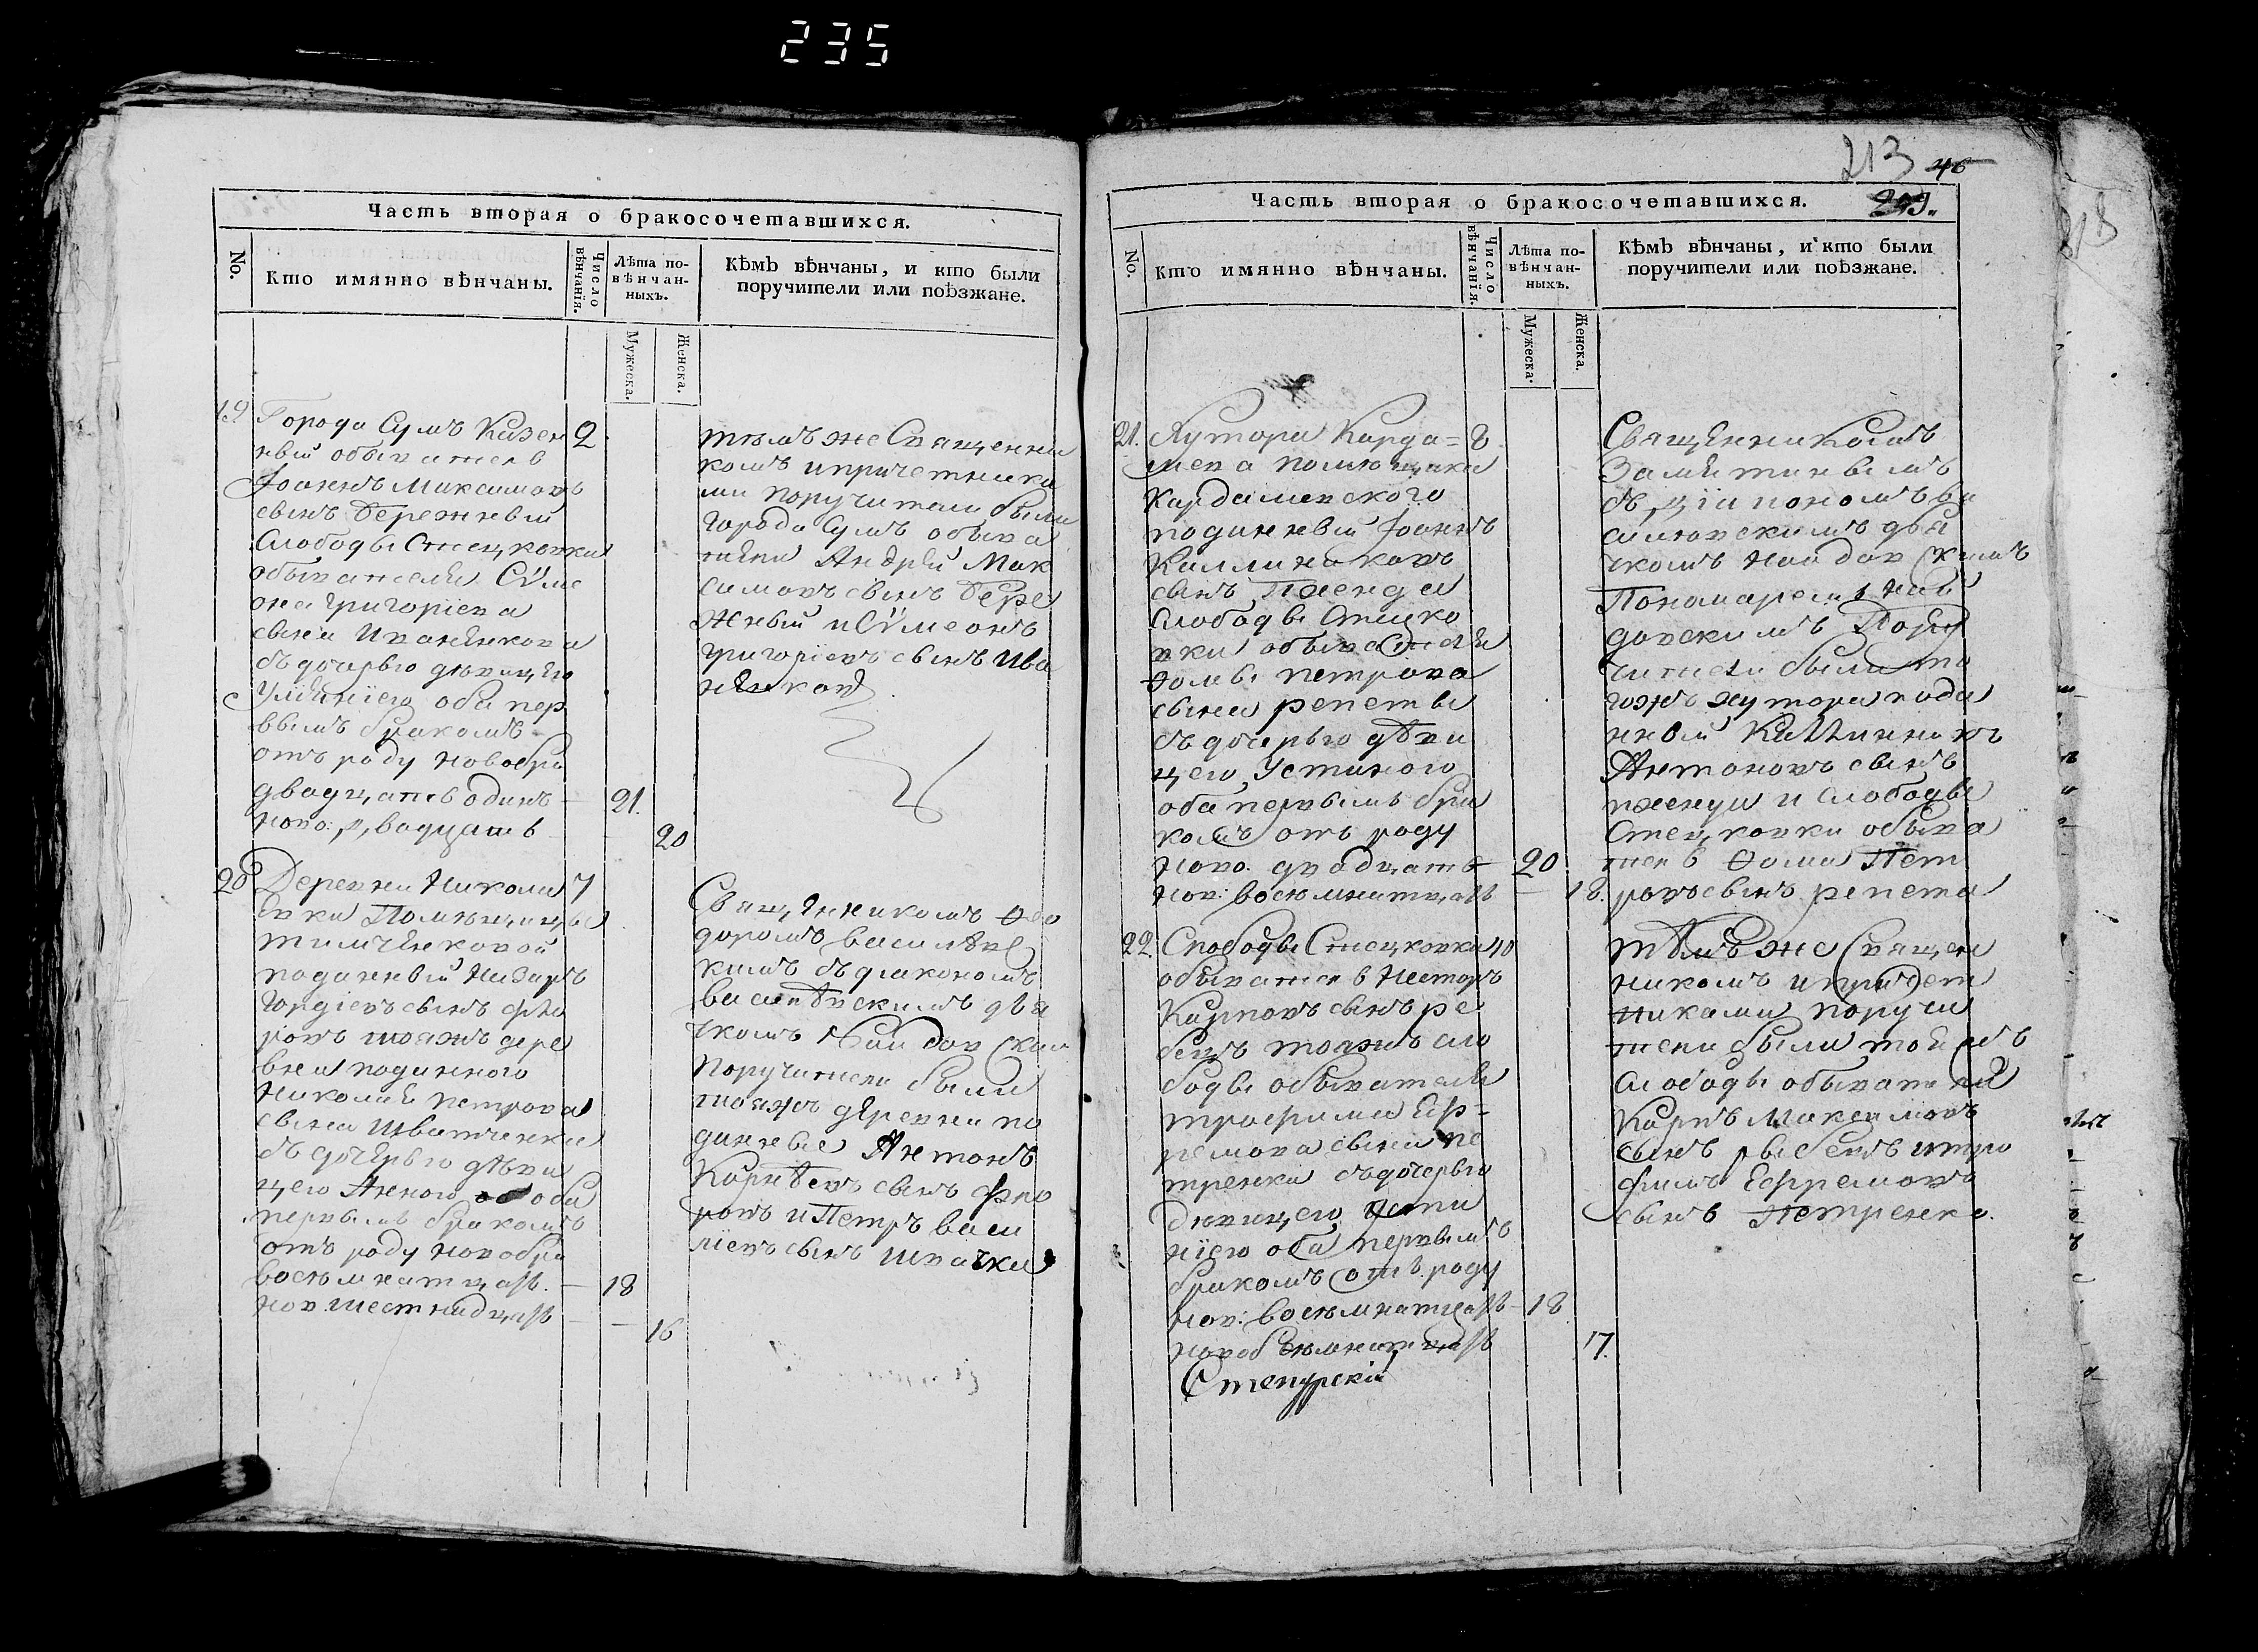 235
Часть вторая о бракосочетавшихся.
No.
Кто имянно вѣнчаны.
Число вѣнчанія.
Лѣта по-
вѣнчан-
ныхъ.
Мужеска.
Женска.
Кѣмъ вѣнчаны, и кто были
поручители или поѣзжане.
19 Города Сумъ Казен 2
ный обыватель
Іоаннъ Максимовъ
сынъ Бережный
Слободы Стецковки
обывателя Сѵме
она Григоріева
сына Иваненкова
съ дочерью дѣвицею
оба пер
вымъ бракомъ
отъ роду новобра
двадцать одинъ 21.
ново: двадцать 20
тѣмъ же Священни
комъ и причетника
ми поручители были
города Сумъ обыва
тели Андрей Мак
симовъ сынъ Бере
жный и Сѵмеонъ
Григоріевъ сынъ Ива
ненков
20 Деревни Никола 7
евки Помѣщицы
тимченковой
подданный Назаръ
Гордіевъ сынъ Фло
ровъ тояжъ дере
вни подданного
Николая Петрова
сына
съ дочерью дѣви
цею Анною оба
первымъ бракомъ
отъ роду новобра
восемнатцать. — 18
нов. шестнадцать — 16
Священникомъ Фео
доромъ Василев
кимъ съ диакономъ
Василевскимъ дья
чкомъ Найдовским
Поручители были
тояжъ деревни по
данные Антонъ
Корнѣевъ сынъ Фло
ровъ и Петръ Васи
ліевъ сынъ Шпачка
213 46
Часть вторая о бракосочетавшихся.
No.
Кто имянно вѣнчаны.
Число вѣнчанія.
Лѣта по-
вѣнчан-
ныхъ.
Мужеска.
Женска.
Кѣмъ вѣнчаны, и кто были
поручители или поѣзжане.
21. Хутора Карда= 8
шева помѣщика
Кардашевского
подданный Іоаннъ
Каллиниковъ
сынъ
Слободы Стецко
вки обывателя
Ѳомы Петрова
сына репеты
съ дочерью дѣви
цею Устиною
оба первымъ бра
комъ отъ роду
ново. двадцать 20
нов: восемнатцать — 18.
Священникомъ
съ діакономъ Ва
силевскимъ дья
чкомъ Найдовскимъ
Пономаремъ Най
довскимъ Пору
чители были то
гожъ хутора подда
нный Каллиникъ
Антоновъ сынъ
и Слободы
Стецковки обыва
тель Ѳома Пет
ровъ сынъ репета
22 Слободы Стецковки 10
обыватель Несторъ
Карповъ сынъ ре
бецъ тояжъ сло
боды обывателя
трофима Еф=
ремова сына пе
тренка съ дочерью
дѣвицею
оба первымъ
бракомъ отъ роду
нов: восемнатцать 18
17.
Степурскій
тѣмъ же Священ
никомъ и причет
никами поручи
тели были тойжъ
слободы обыватели
Карпъ Максимовъ
сынъ и тро
фимъ Ефремовъ
сынъ Петренко.